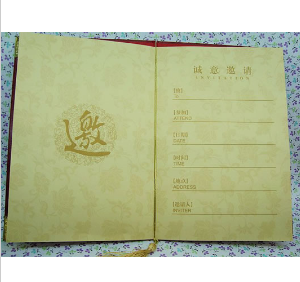 邀
诚意邀请
INVITATION
【致】
TO
【事项】
【日期】
DATE
【时间】
TIME
【地点】
ADDRESS
【邀请人】
INVITER